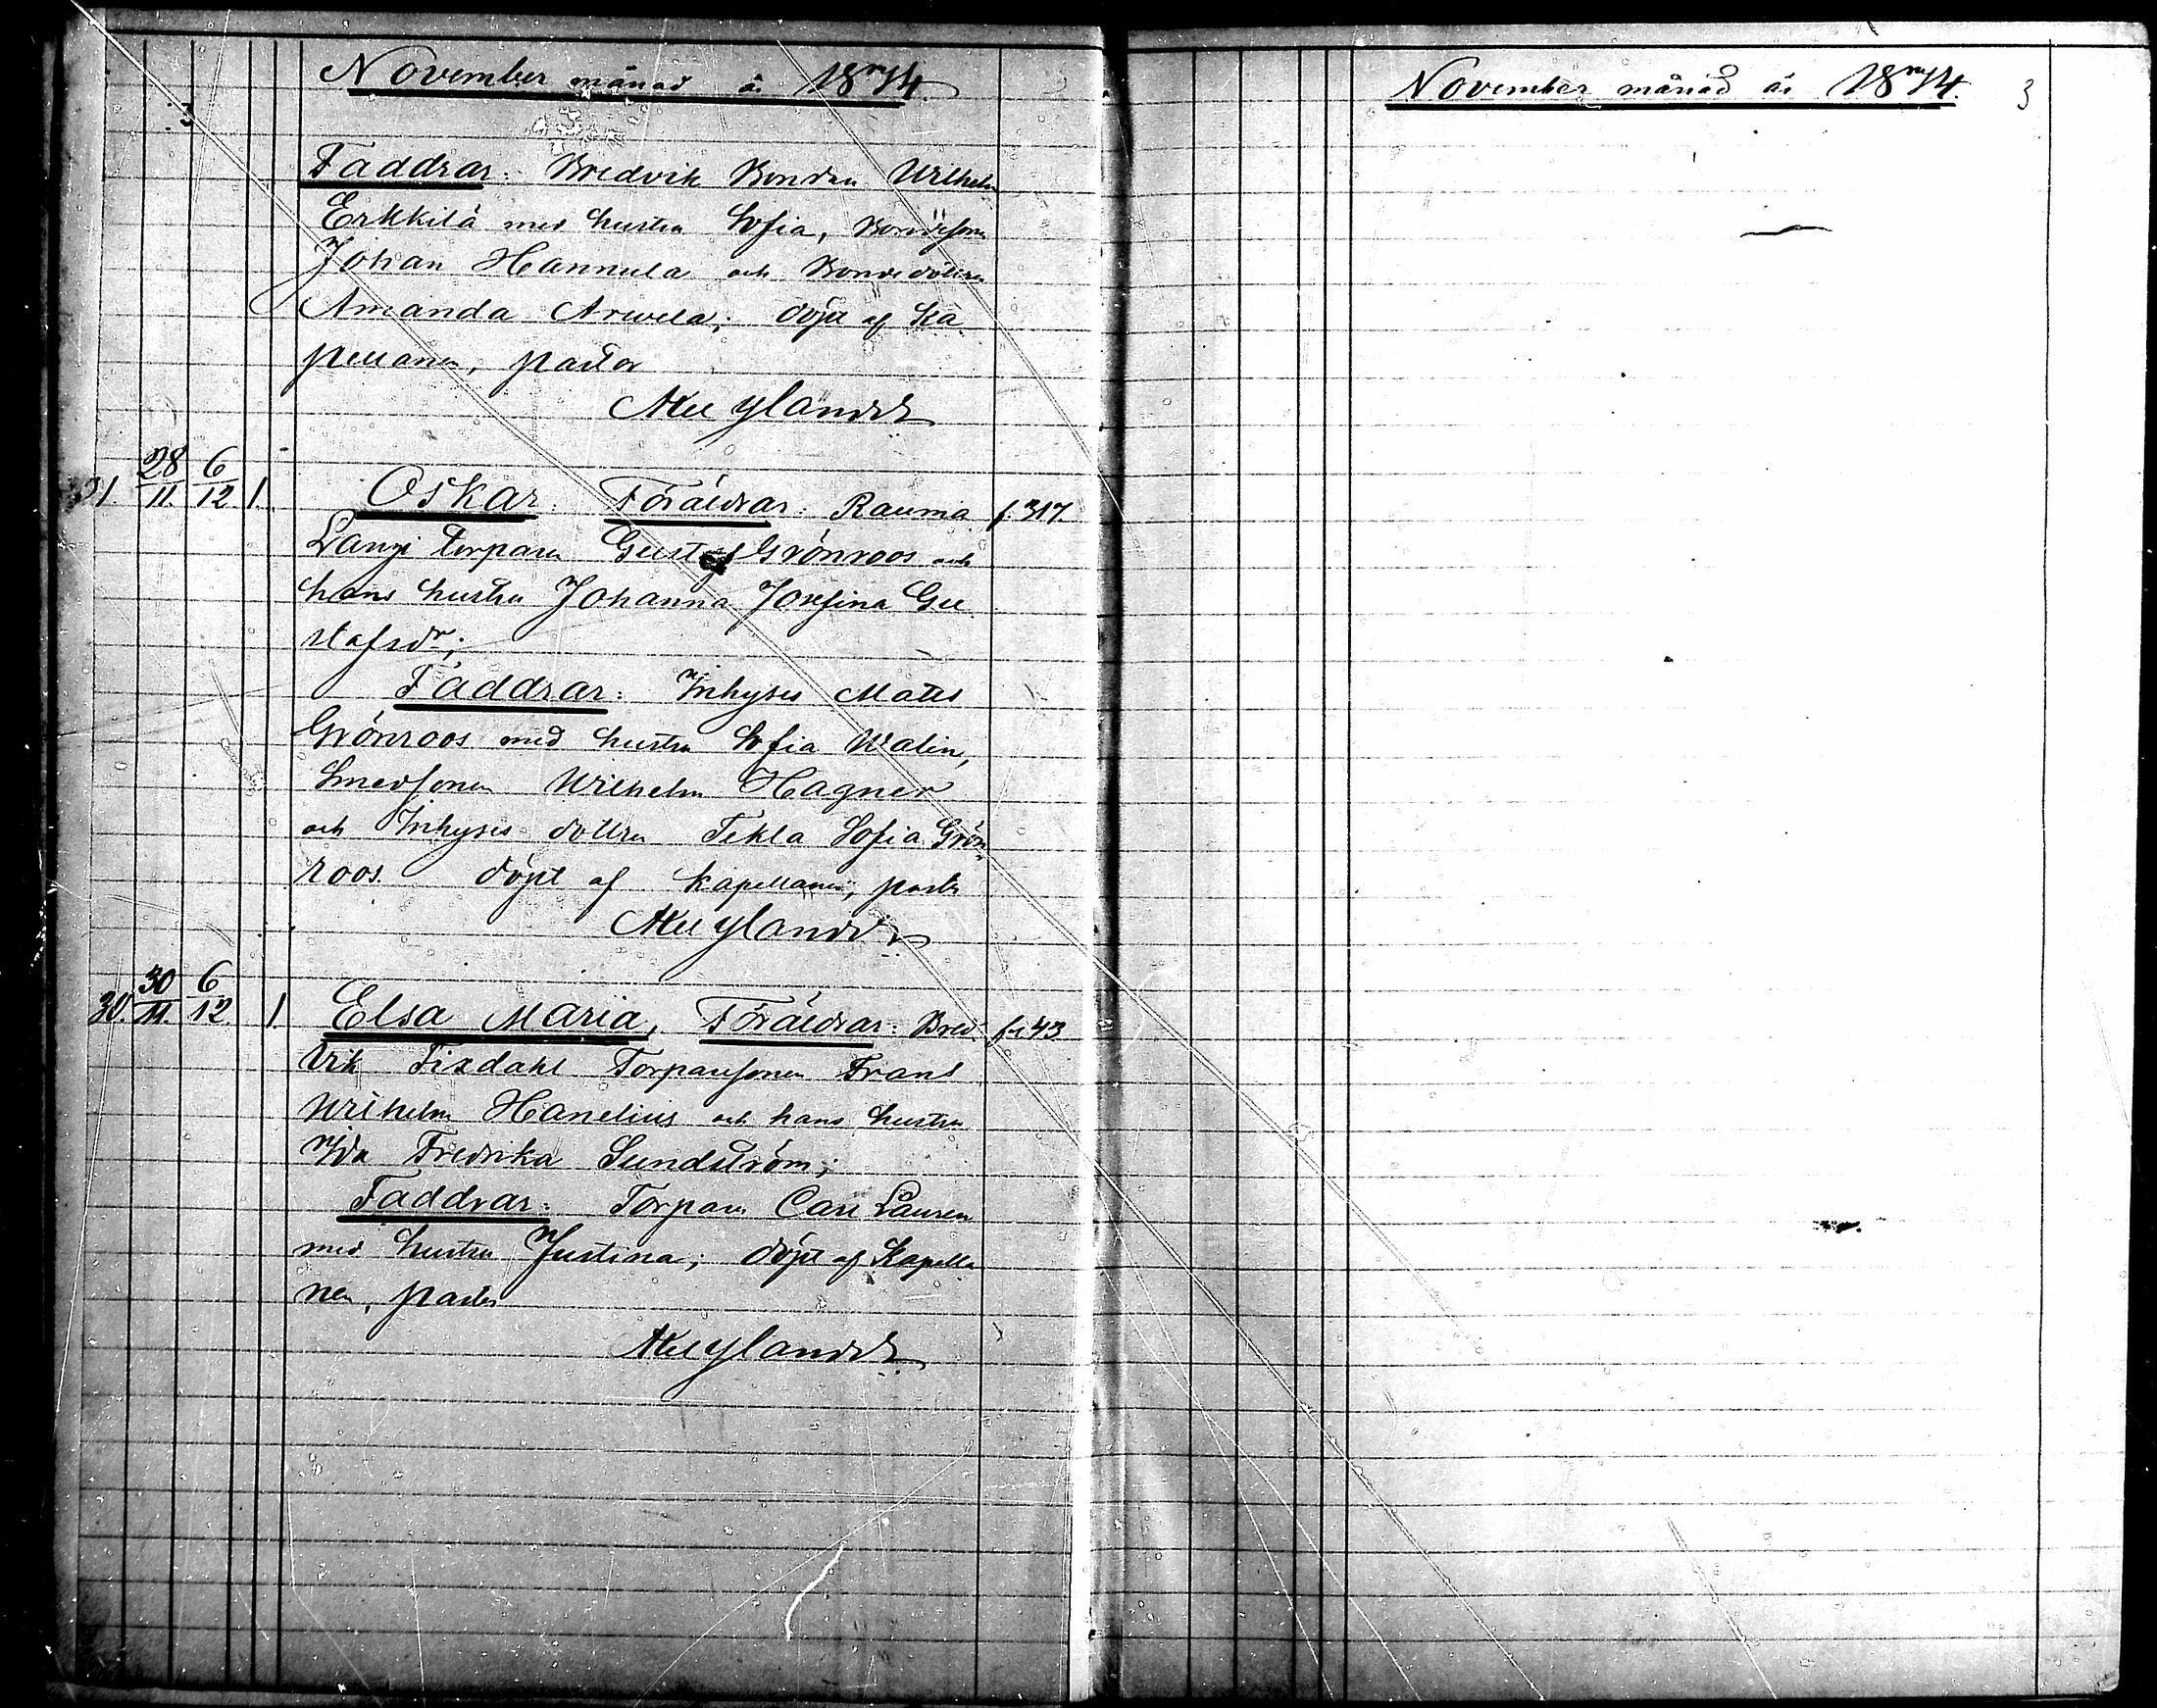 November månad år 1874.
3
Faddrar: Bredvik Bonden Wilhelm
Erkkilä med hustru Sofia, Bondesonen
Johan Hannula och Bondedottren
Amanda Arwela; döpt af Ka
pellanen, pastor
Mellylander
31. 28/11. 6/12. 1. Oskar. Föräldrar: Rauma f. 317.
Langi torparen Gustaf Grönroos och
hans hustru Johanna Josefina Gu
stafsdr;
Faddrar: Inhyses Matts
Grönroos med hustru Sofia Walin,
Smedsonen Wilhelm Hagner
och Inhyses dottren Tekla Sofia Grön
roos. döpt af kapellanen, pastor
30/11. 6/12. 1. Elsa Maria, Föräldrar: Bred 43.
vik Fixdahl Torparesonen Frans
Wilhelm Hanelius och hans hustru
Ida Fredrika Sundström;
Faddrar: Torparen Carl Lauren
med hustru Justina; döpt af Kapella
nen, pastor
November månad år 1874. 3